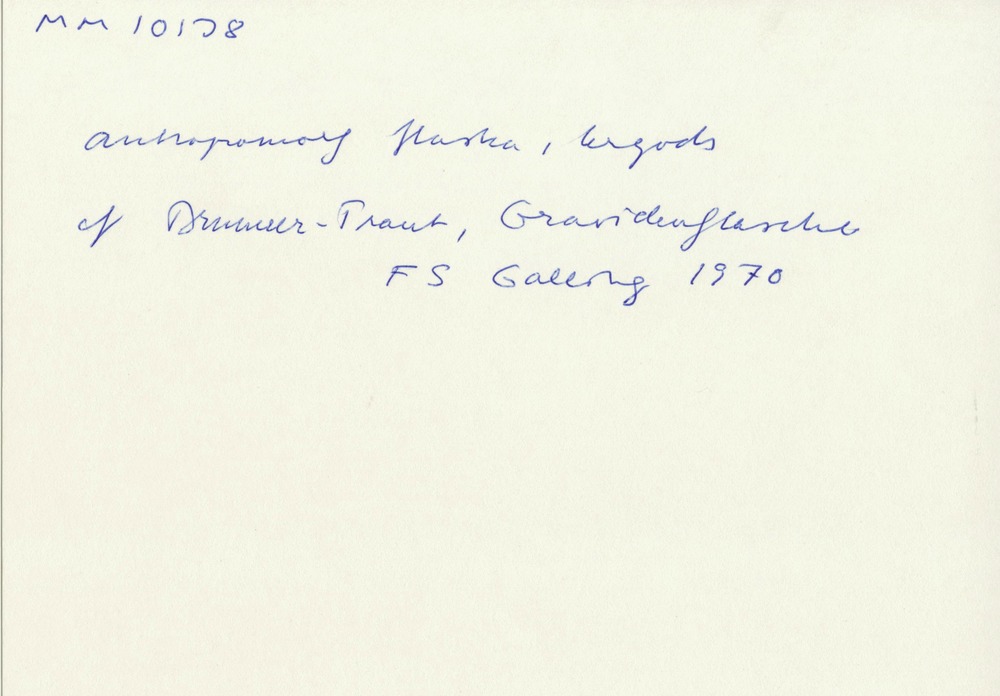 MM 10178
antropomorf flaska, lergods
cf Brunner-Traut, Gravidenflasche
FS Galling 1970